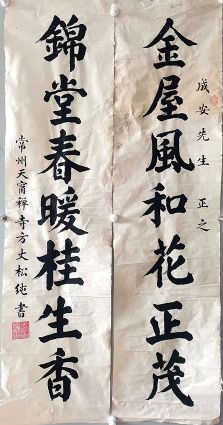 成安先生 正之
金屋風和花正茂
錦堂春暖桂生香
常州天甯禪寺方丈松純書